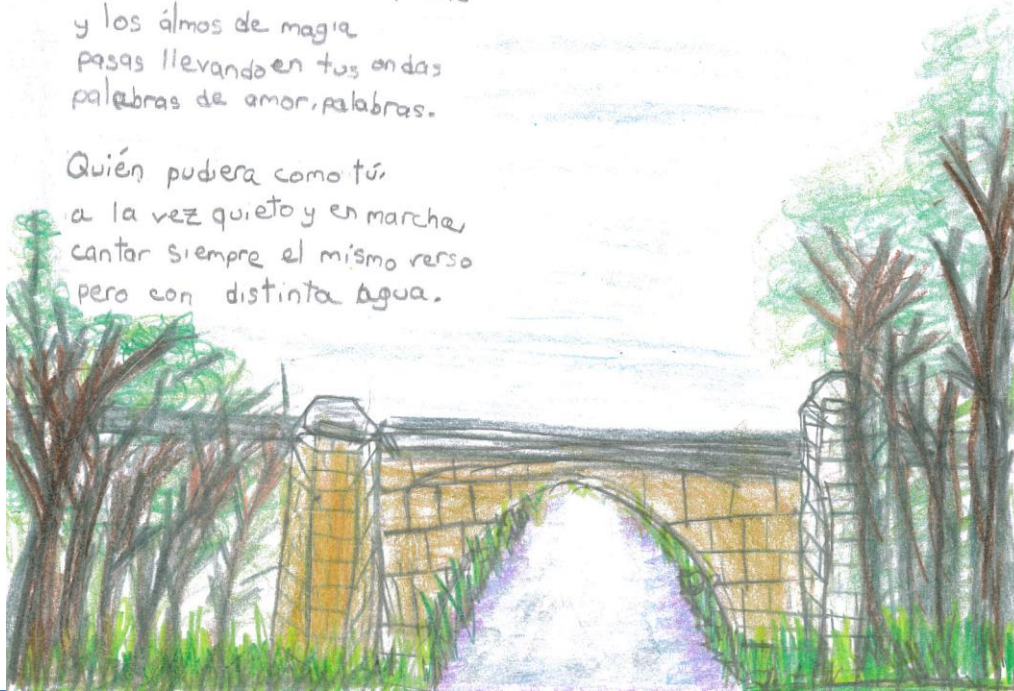 y los álmos de magia
pasas llevando en tus ondas
palabras de amor, palabras.
Quién pudiera como tú,
a la vez quieto y en marcha,
cantar siempre el mismo verso
pero con distinta agua.